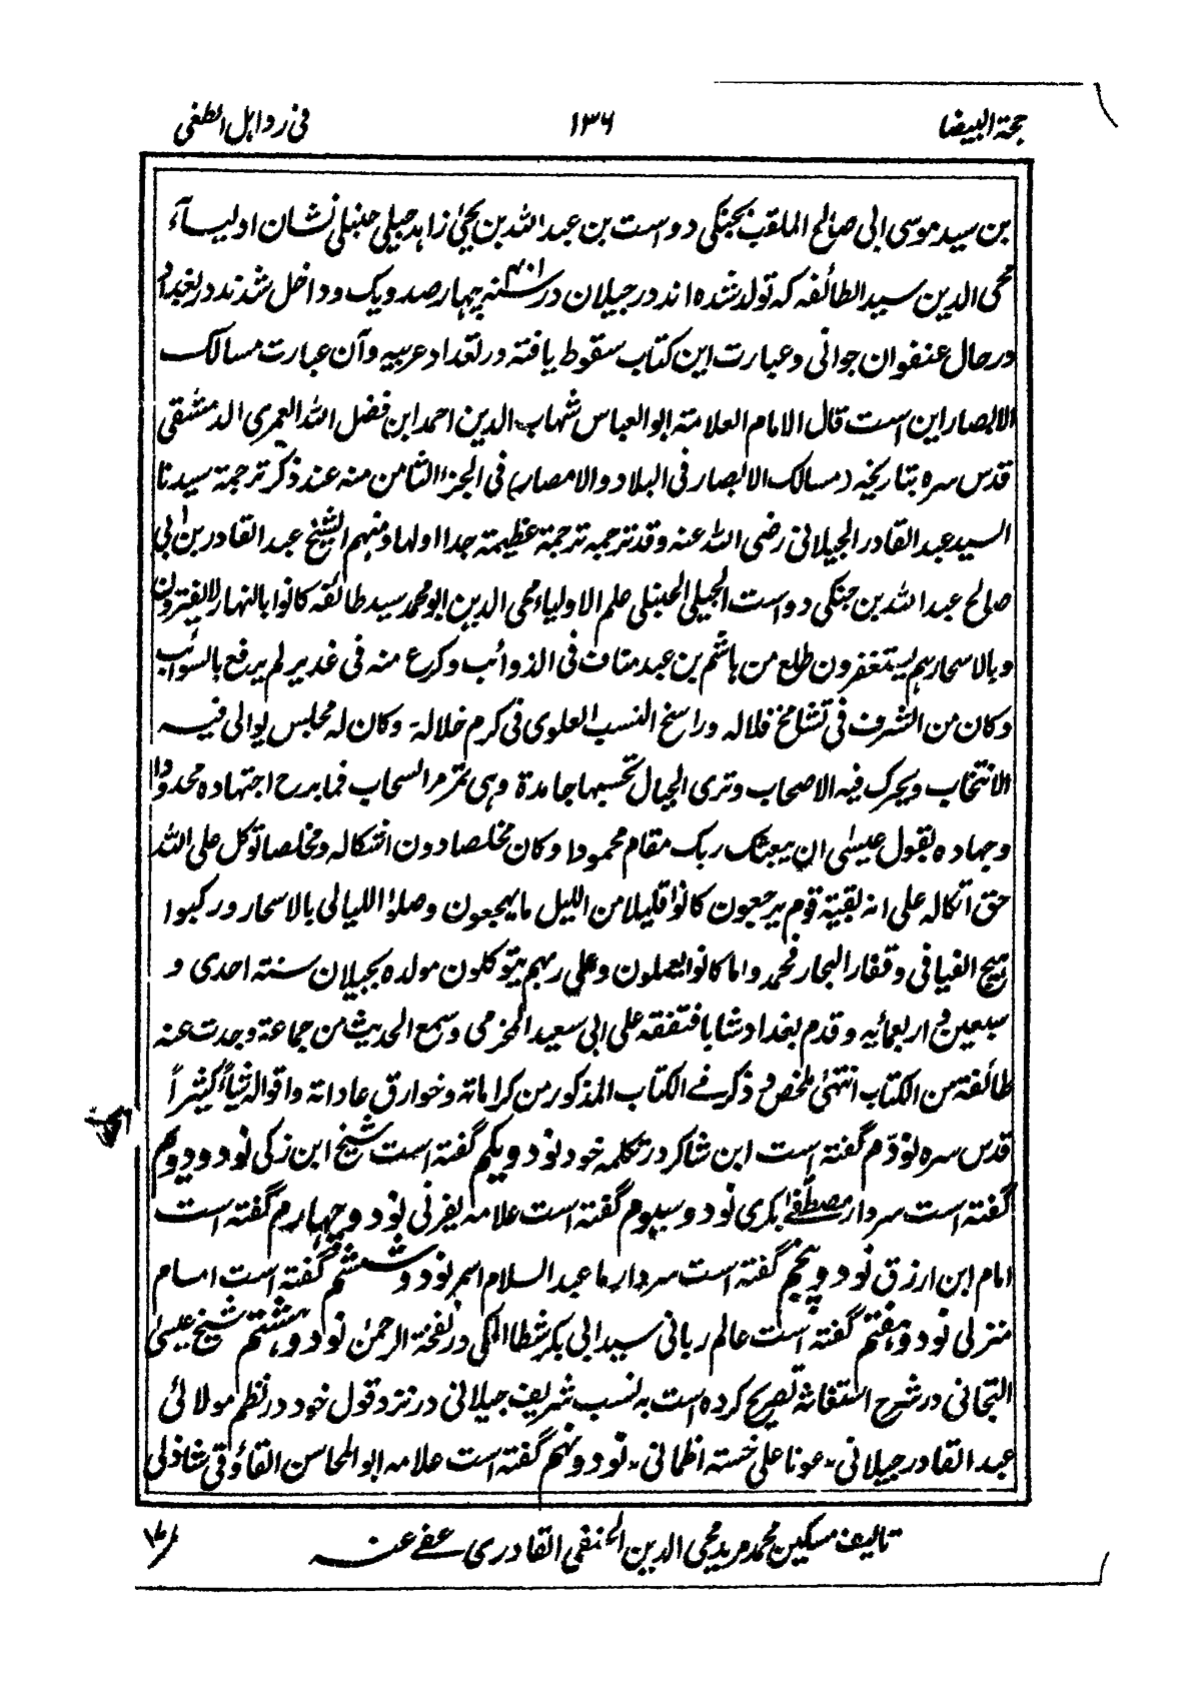 حجة البيضا ۱۳۶ فى رد اہل الطغى
بن سید موسى ابى صالح الملقب بجنگى دوست بن عبد اللہ بن یحیىٰ زاہد جیلى حنبلى نشان اولیآء
محى الدین سید الطائفہ کہ تولد شدہ اند در جیلان در سنہ چہار صد و یک و داخل شدند در بغداد
در حال عنفوان جوانى و عبارت این کتاب سقوط یافتہ در تعداد عربیہ و آن عبارت مسالک
الابصار این است قال الامام العلامة ابو العباس شہاب الدین احمد ابن فضل اللہ العمرى الدمشقى
قدس سرہ بتاریخہ (مسالک الابصار فى البلاد والامصار) فى الجزء الثامن منہ عند ذکر ترجمة سیدنا
السید عبد القادر الجیلانى رضى اللہ عنہ وقد ترجمہ ترجمة عظیمة جدا اولہا ومنہم الشیخ عبد القادر بن ابى
صالح عبد اللہ بن جنکى دوست الجیلى الحنبلى علم الاولیاء محى الدین ابو محمد سید طائفہ کانوا بالنہار لایفترون
وبالاسحار ہم یستغفرون طلع من ہاشم بن عبد مناف فى الذوائب وکرع منہ فى غدیر لم یرفع بالسوائب
وکان من الشرف فى تشامخ قلالہ وراسخ النسب العلوى فى کرم خلالہ وکان لہ مجلس یوالى فیہ
الانتخاب ویحرک فیہ الاصحاب وترى الجبال تحسبہا جامدة وہى تمر مر السحاب فما برح اجتہادہ محدودا
وجہادہ یقول عیسىٰ ان یبعثک ربک مقام محمودا وکان مخلصا دون اتکالہ ومخلصا توکل على اللہ
حق اتکالہ على انہ بقیة قوم یرجعون کانوا قلیلا من اللیل ما یہجعون وصلوا اللیالى بالاسحار ورکبوا
الفیافى وقفار البحار فحمدوا ما کانوا یعملون وعلى ربہم یتوکلون مولدہ بجیلان سنتہ احدى و
سبعین فى اربعمائیہ وقدم بغداد شابا فتفقہ على ابى سعید المخرمى وسمع الحدیث من جماعة وجدت عنہ
طائفة من الکتاب انتہىٰ ملخص و ذکر فے الکتاب المذکور من کراماتہ وخوارق عاداتہ واقوالہ شیأً کثیراً
قدس سرہ نودم گفتہ است ابن شاکر در تکلمہ خود نود و یکم گفتہ است شیخ ابن زکى نود و دوم
گفتہ است سردار مصطفےٰ بکرى نود و سیوم گفتہ است علامہ یفرنى نود و چہارم گفتہ است
امام ابن ارزق نود و پنجم گفتہ است سردار ما عبد السلام اسمر نود و ششم گفتہ است امام
منزلى نود و ہفتم گفتہ است عالم ربانى سید ابى بکر شطا المکى در نفخة الرحمن نود و ہشتم شیخ عیسىٰ
التجانى در شرح استغاثہ تصریح کردہ است بہ نسب شریف جیلانى در نزد قول خود در نظم مولائى
عبد القادر جیلانى۔ عونا على خستہ اظمانى۔ نود و نہم گفتہ است علامہ ابو المحاسن القاؤقى شاذلى
تالیف مسکین محمد مرید محى الدین الحنفى القادرى عفے عنہ